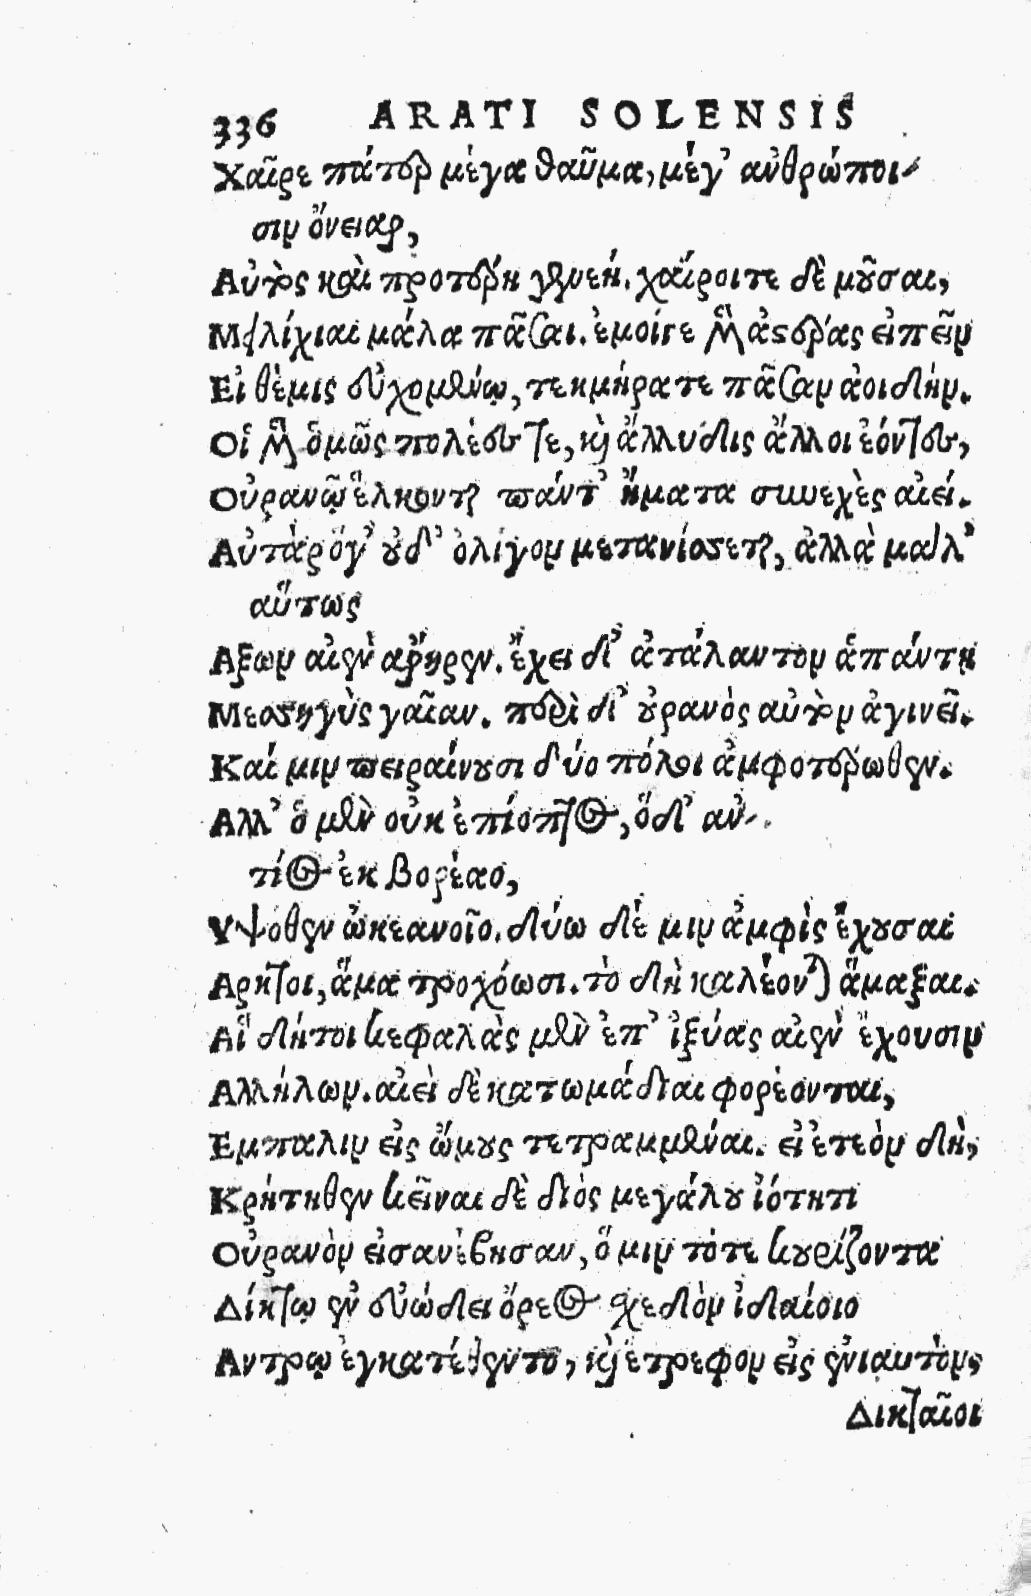 336 ARATI SOLENSIS
Χαῖρε πάτερ μέγα θαῦμα, μέγ' ἀνθρώποι-
σιν ὄνειαρ,
Αὐτὸς καὶ προτέρη γενεή. χαίροιτε δὲ μοῦσαι,
Μειλίχιαι μάλα πᾶσαι. ἐμοίγε μὲν ἀστέρας εἰπεῖν
Εἰ θέμις εὐχομένῳ, τεκμήρατε πᾶσαν ἀοιδήν.
Οἱ μὲν ὁμῶς πολέες τε, καὶ ἄλλυδις ἄλλοι ἐόντες,
Οὐρανῷ ἕλκονται πάντ' ἤματα συνεχὲς αἰεί.
Αὐτὰρ ὅγ' οὐδ' ὀλίγον μετανίσσεται, ἀλλὰ μάλ'
αὕτως
Αξων αἰὲν ἄρηρεν. ἔχει δ' ἀτάλαντον ἁπάντη
Μεσσηγὺς γαῖαν. περὶ δ' οὐρανὸς αὐτὸν ἀγινεῖ.
Καί μιν πειραίνουσι δύο πόλοι ἀμφοτέρωθεν.
Αλλ' ὁ μὲν οὐκ ἐπίοπτος, ὅδ' ἀν-
τίος ἐκ βορέαο,
Υψόθεν ὠκεανοῖο. δύω δέ μιν ἀμφὶς ἔχουσαι
Αρκτοι, ἅμα τροχόωσι. τὸ δὴ καλέονται ἅμαξαι.
Αἳ δήτοι κεφαλὰς μὲν ἐπ' ἰξύας αἰὲν ἔχουσιν
Αλλήλων. αἰεὶ δὲ κατωμάδιαι φορέονται,
Εμπαλιν εἰς ὤμους τετραμμέναι. εἰ ἐτεὸν δὴ,
Κρήτηθεν κεῖναι δὲ διὸς μεγάλου ἰότητι
Οὐρανὸν εἰσανέβησαν, ὅ μιν τότε κουρίζοντα
Δίκτῳ ἐν εὐώδει ὄρεος σχεδὸν ἰδαίοιο
Αντρῳ ἐγκατέθεντο, καὶ ἔτρεφον εἰς ἐνιαυτὸν,
Δικταῖοι